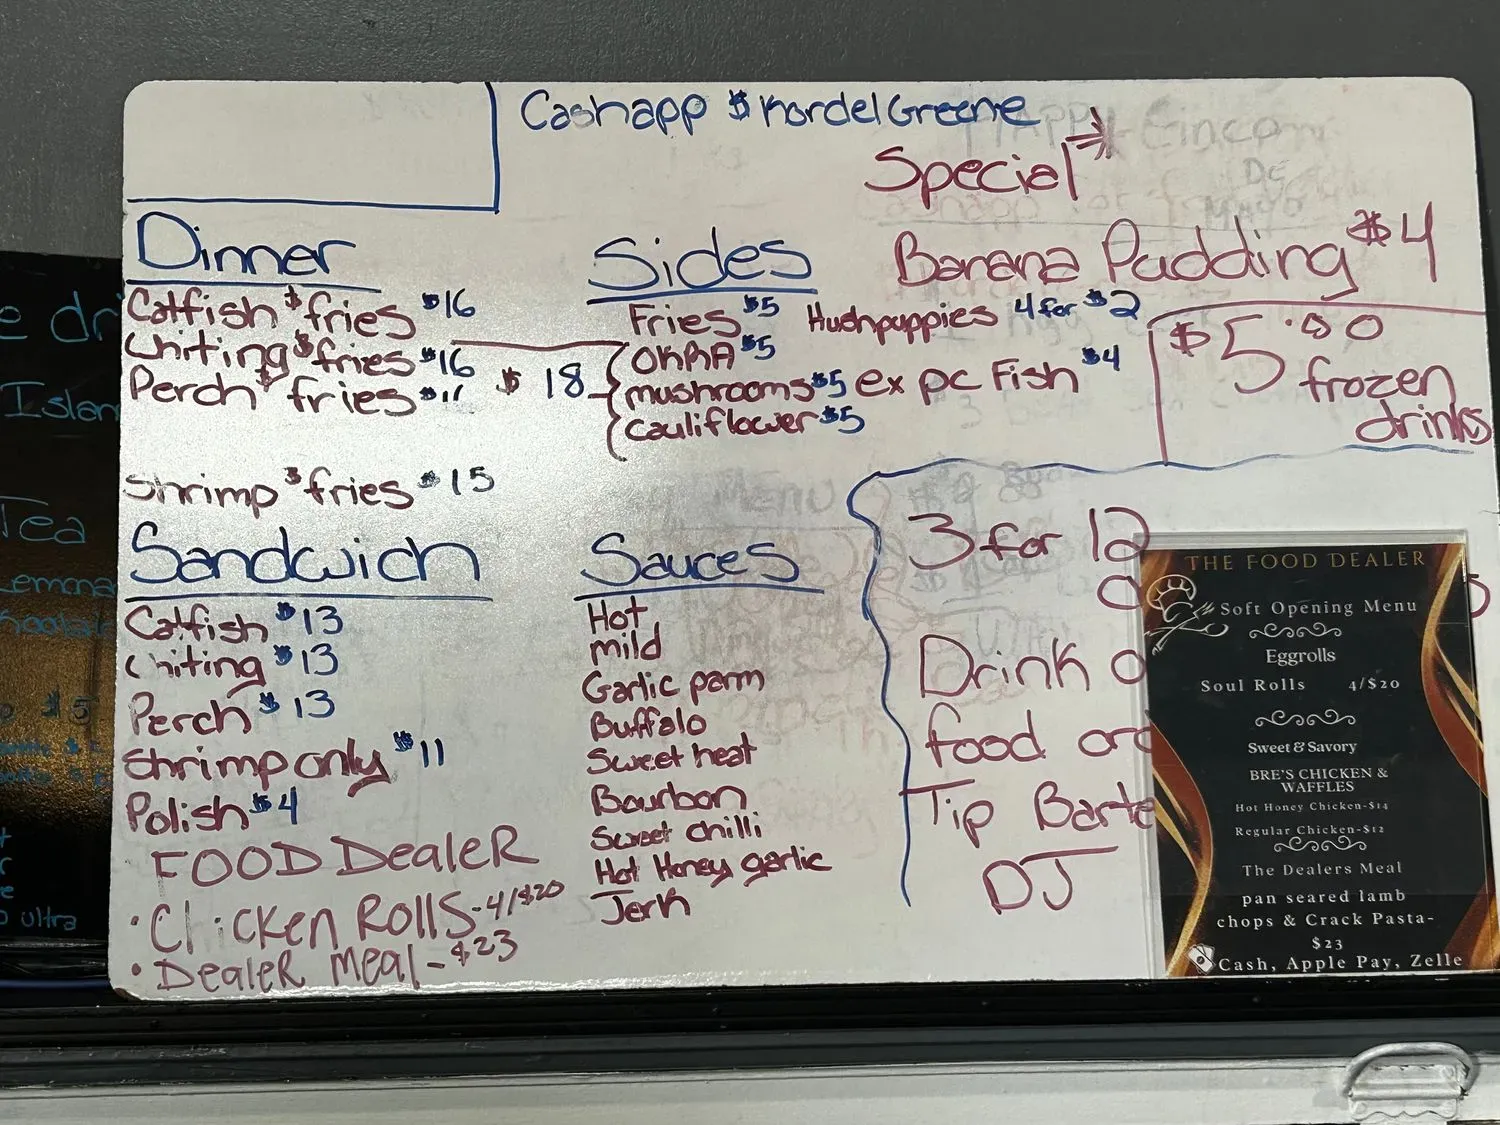 Cashapp $KordelGreene
Special
Banana Pudding $4
$5.00
frozen
drinks
Dinner
Catfish $ fries $16
Whiting $ fries $16
Perch $ fries
$18
Shrimp $ fries $15
Sides
Fries $5
OKRA $5
mushrooms $5
cauliflower $5
Hushpuppies 4 for $2
ex pc Fish $4
Sandwich
Catfish $13
Whiting $13
Perch $13
Shrimp only $11
Polish $4
FOOD DealeR
• Chicken Rolls - 4/$20
• DealeR meal - $23
Sauces
Hot
mild
Garlic parm
Buffalo
Sweet heat
Bourbon
Sweet chilli
Hot Honey garlic
Jerk
3 for 12
Drink
food
Tip
DJ
THE FOOD DEALER
Soft Opening Menu
Eggrolls
Soul Rolls 4/$20
Sweet & Savory
BRE'S CHICKEN &
WAFFLES
Hot Honey Chicken-$14
Regular Chicken-$12
The Dealers Meal
pan seared lamb
chops & Crack Pasta-
$23
Cash, Apple Pay, Zelle
Island
Tea
$5
ultra